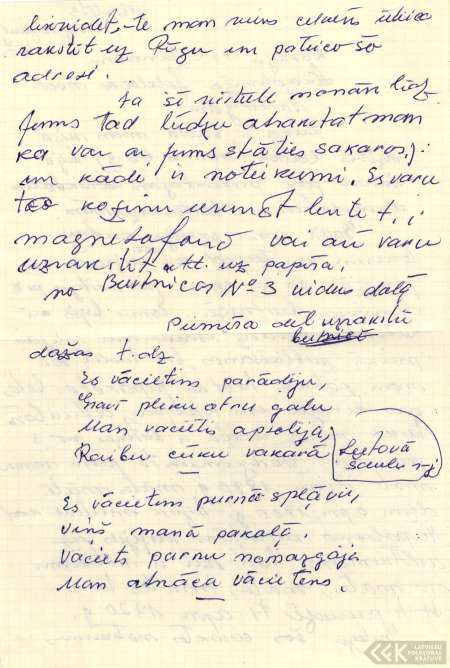 līdz, te man viens cilvēks ieteica
rakstīt uz Rīgu un pateica šo
adresi.
Ja šī vēstule nonāk līdz
jums tad lūdzu atrakstat man
ka var ar jums stāties sakaros,
un kādi ir noteikumi. Es varu
ko zinu ierunāt lentē t.i.
magnetafonā vai arī varu
uzrakstīt, utt. uz papīra.
no Burtnīcas № 3 vidus daļā
Piemēra dēļ uzrakstu
dažas t. dz.
Es vācietim parādīju,
Savu pliku otru galu
Man vācietis apsolīja,
Raibu cūku vakarā
saulu
Es vācietim purnā spļāvu,
viņš manā pakaļā.
Vāciets purnu nomazgāja
Man atnāca vācietēns.
LATVIEŠU
FOLKLORAS
KRĀTUVE